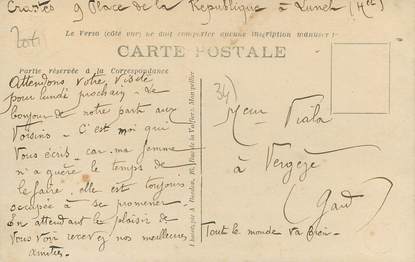 Crastes 9 Place de la République à Lunel (Hlt)
Le Verso (côté vue) ne doit comporter aucune inscription manuscrite
CARTE POSTALE
Partie réservée à la Correspondance
Attendons votre visite
pour lundi prochain. Le
bonjour de notre part aux
Voisins - C'est moi qui
Vous écris car ma femme
n'a guère le temps de
le faire. elle est toujours
occupée à se promener.
En attendant le plaisir de
vous voir recevez nos meilleures
amitiés.
34
Meur Viala
à Vergèze
(Gard)
Tout le monde va bien.